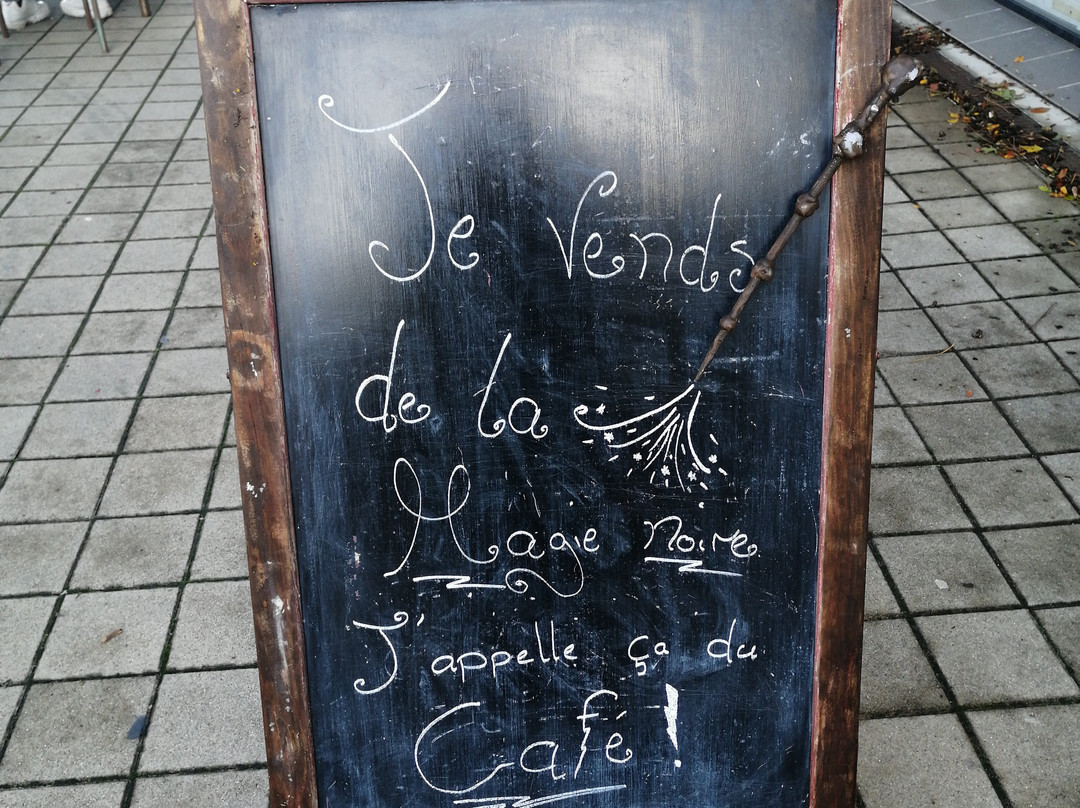 Je Vends
de la
Magie noire
J'appelle ça du
Café !